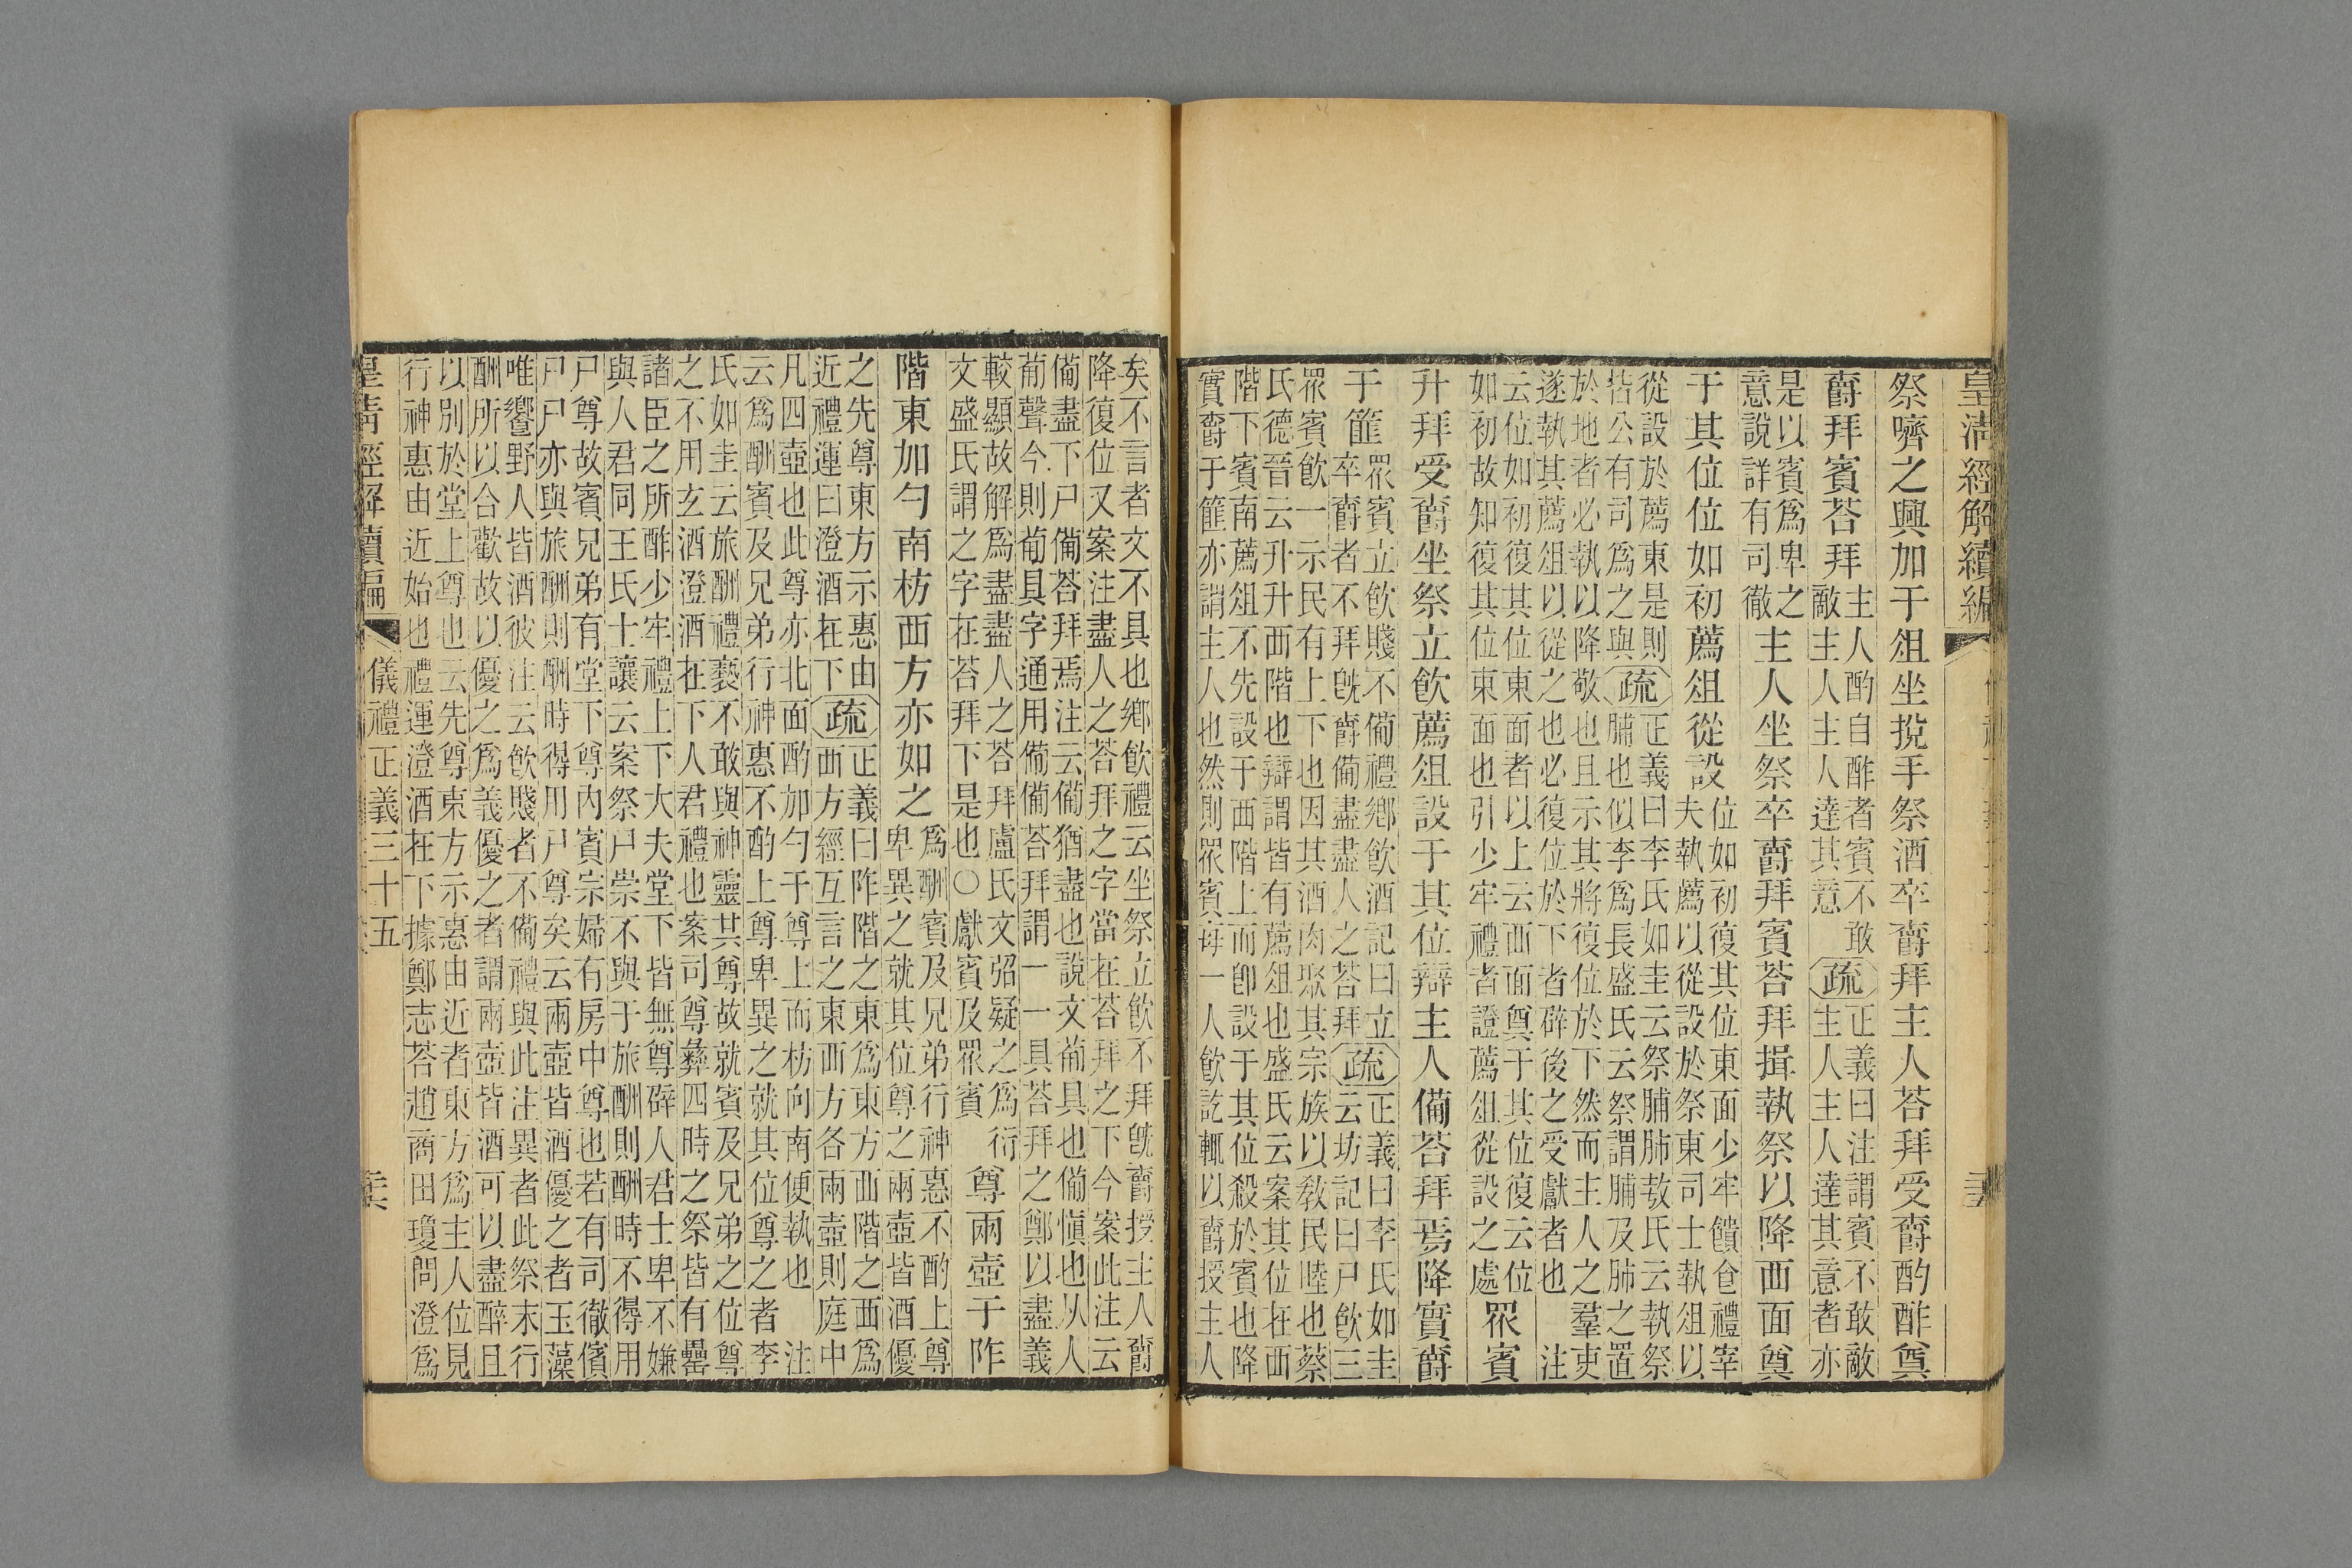 皇清經解續編
祭嚌之興加于俎坐挩手祭酒卒爵拜主人荅拜受爵酌酢奠
爵拜賓荅拜
主人酌自酢者賓不敢
敵主人主人達其意
疏
正義曰注謂賓不敢敵
主人主人達其意者亦
是以賓爲卑之
意說詳有司徹
主人坐祭卒爵拜賓荅拜揖執祭以降西面奠
于其位位如初薦俎從設
位如初復其位東面少牢饋食禮宰
夫執薦以從設於祭東司士執俎以
從設於薦東是則
皆公有司爲之與
疏
正義曰李氏如圭云祭脯肺敖氏云執祭
脯也似李爲長盛氏云祭謂脯及肺之置
於地者必執以降敬也且示其將復位於下然而主人之羣吏
遂執其薦俎以從之也必復位於下者辟後之受獻者也 注
云位如初復其位東面者以上云西面奠于其位復云位
如初故知復其位東面也引少牢禮者證薦俎從設之處
眾賓
升拜受爵坐祭立飮薦俎設于其位辯主人備荅拜焉降實爵
于篚
眾賓立飮賤不備禮鄉飮酒記曰立
卒爵者不拜旣爵備盡盡人之荅拜
疏
正義曰李氏如圭
云坊記曰尸飮三
眾賓飮一示民有上下也因其酒肉聚其宗族以敎民睦也蔡
氏德晉云升升西階也辯謂皆有薦俎也盛氏云案其位在西
階下賓南薦俎不先設于西階上而卽設于其位殺於賓也降
實爵于篚亦謂主人也然則眾賓每一人飮訖輒以爵授主人
矣不言者文不具也鄉飮禮云坐祭立飮不拜旣爵授主人爵
降復位又案注盡人之荅拜之字當在荅拜之下今案此注云
備盡下尸備荅拜焉注云備猶盡也說文葡具也備愼也从人
葡聲今則葡具字通用備備荅拜謂一一具荅拜之鄭以盡義
較顯故解爲盡盡人之荅拜盧氏文弨疑之爲衍
文盛氏謂之字在荅拜下是也○獻賓及眾賓
尊兩壺于阼
階東加勺南枋西方亦如之
爲酬賓及兄弟行神惠不酌上尊
卑異之就其位尊之兩壺皆酒優
之先尊東方示惠由
近禮運曰澄酒在下
疏
正義曰阼階之東爲東方西階之西爲
西方經互言之東西方各兩壺則庭中
凡四壺也此尊亦北面酌加勺于尊上而枋向南便執也 注
云爲酬賓及兄弟行神惠不酌上尊卑異之就其位尊之者李
氏如圭云旅酬禮褻不敢與神靈其尊故就賓及兄弟之位尊
之不用玄酒澄酒在下人君禮也案司尊彝四時之祭皆有罍
諸臣之所酢少牢禮上下大夫堂下皆無尊辟人君士卑不嫌
與人君同王氏士讓云案祭尸祟不與于旅酬則酬時不得用
尸尊故賓兄弟有堂下尊內賓宗婦有房中尊也若有司徹儐
尸尸亦與旅酬則酬時得用尸尊矣云兩壺皆酒優之者玉藻
唯饗野人皆酒彼注云飮賤者不備禮與此注異者此祭末行
酬所以合歡故以優之爲義優之者謂兩壺皆酒可以盡醉且
以別於堂上尊也云先尊東方示惠由近者東方爲主人位見
行神惠由近始也禮運澄酒在下據鄭志荅趙商田瓊問澄爲
皇清經解續編
儀禮正義三十五